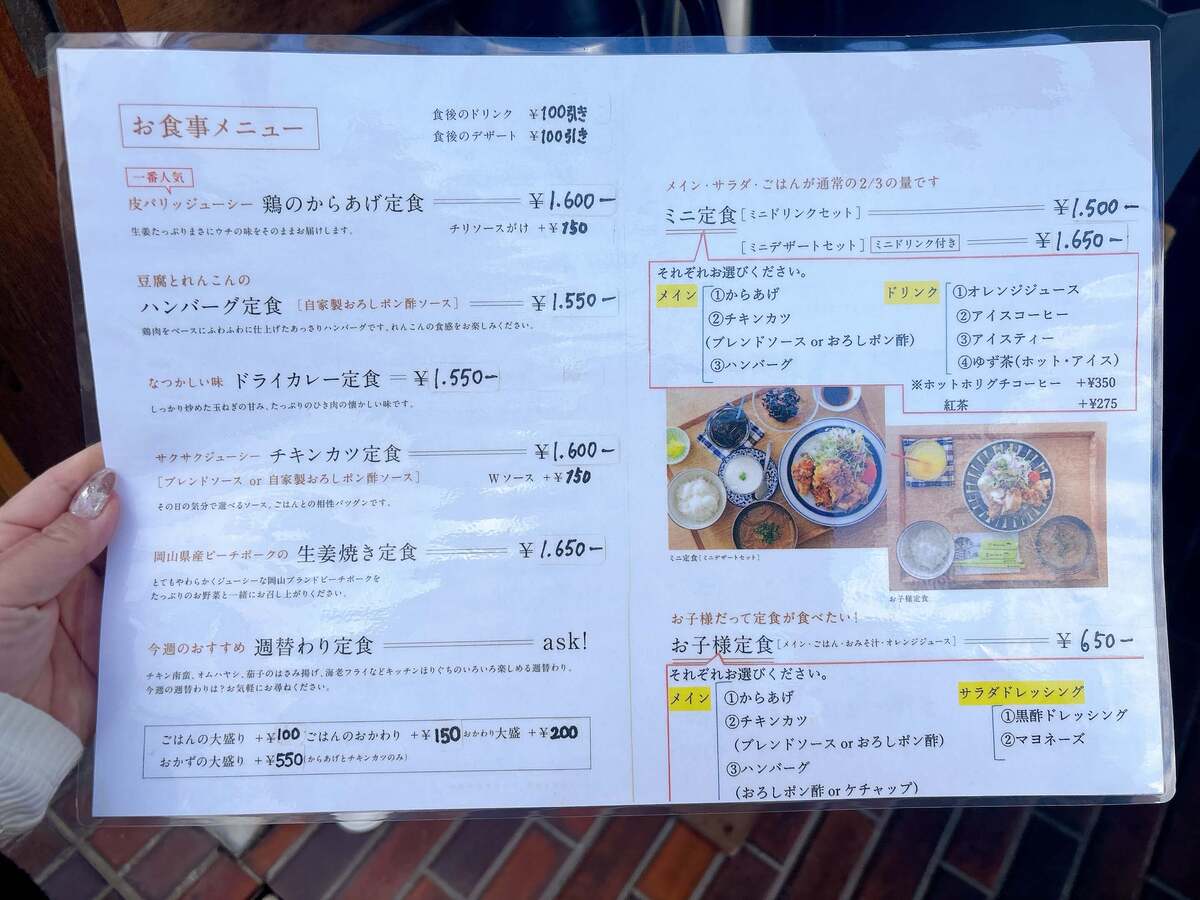 お食事メニュー
食後のドリンク ¥100引き
食後のデザート ¥100引き
一番人気
皮パリッジューシー 鶏のからあげ定食 ¥1.600-
生姜たっぷりまさにウチの味をそのままお届けします。 チリソースがけ +¥150
豆腐とれんこんの
ハンバーグ定食 [自家製おろしポン酢ソース] ¥1.550-
鶏肉をベースにふわふわに仕上げたあっさりハンバーグです、れんこんの食感をお楽しみください。
なつかしい味 ドライカレー定食 ¥1.550-
しっかり炒めた玉ねぎの甘み、たっぷりのひき肉の懐かしい味です。
サクサクジューシー チキンカツ定食 ¥1.600-
[ブレンドソース or 自家製おろしポン酢ソース] Wソース +¥150
その日の気分で選べるソース、ごはんとの相性バツグンです。
岡山県産ピーチポークの 生姜焼き定食 ¥1.650-
とてもやわらかくジューシーな岡山ブランドピーチポークを
たっぷりのお野菜と一緒にお召し上がりください。
今週のおすすめ 週替わり定食 ask!
チキン南蛮、オムハヤシ、茄子のはさみ揚げ、海老フライなどキッチンはりぐちのいろいろ楽しめる週替わり。
今週の週替わりは?お気軽にお尋ねください。
ごはんの大盛り +¥100 ごはんのおかわり +¥150 おかわり大盛 +¥200
おかずの大盛り +¥550 (からあげとチキンカツのみ)
メイン・サラダ・ごはんが通常の2/3の量です
ミニ定食 [ミニドリンクセット] ¥1.500-
[ミニデザートセット] ミニドリンク付き ¥1.650-
それぞれお選びください。
メイン ①からあげ
②チキンカツ
(ブレンドソース or おろしポン酢)
③ハンバーグ
ドリンク ①オレンジジュース
②アイスコーヒー
③アイスティー
④ゆず茶(ホット・アイス)
※ホットホリグチコーヒー +¥350
紅茶 +¥275
ミニ定食[ミニデザートセット]
お子様定食
お子様だって定食が食べたい!
お子様定食 [メイン・ごはん・おみそ汁・オレンジジュース] ¥650-
それぞれお選びください。
メイン ①からあげ
②チキンカツ
(ブレンドソース or おろしポン酢)
③ハンバーグ
(おろしポン酢 or ケチャップ)
サラダドレッシング
①黒酢ドレッシング
②マヨネーズ